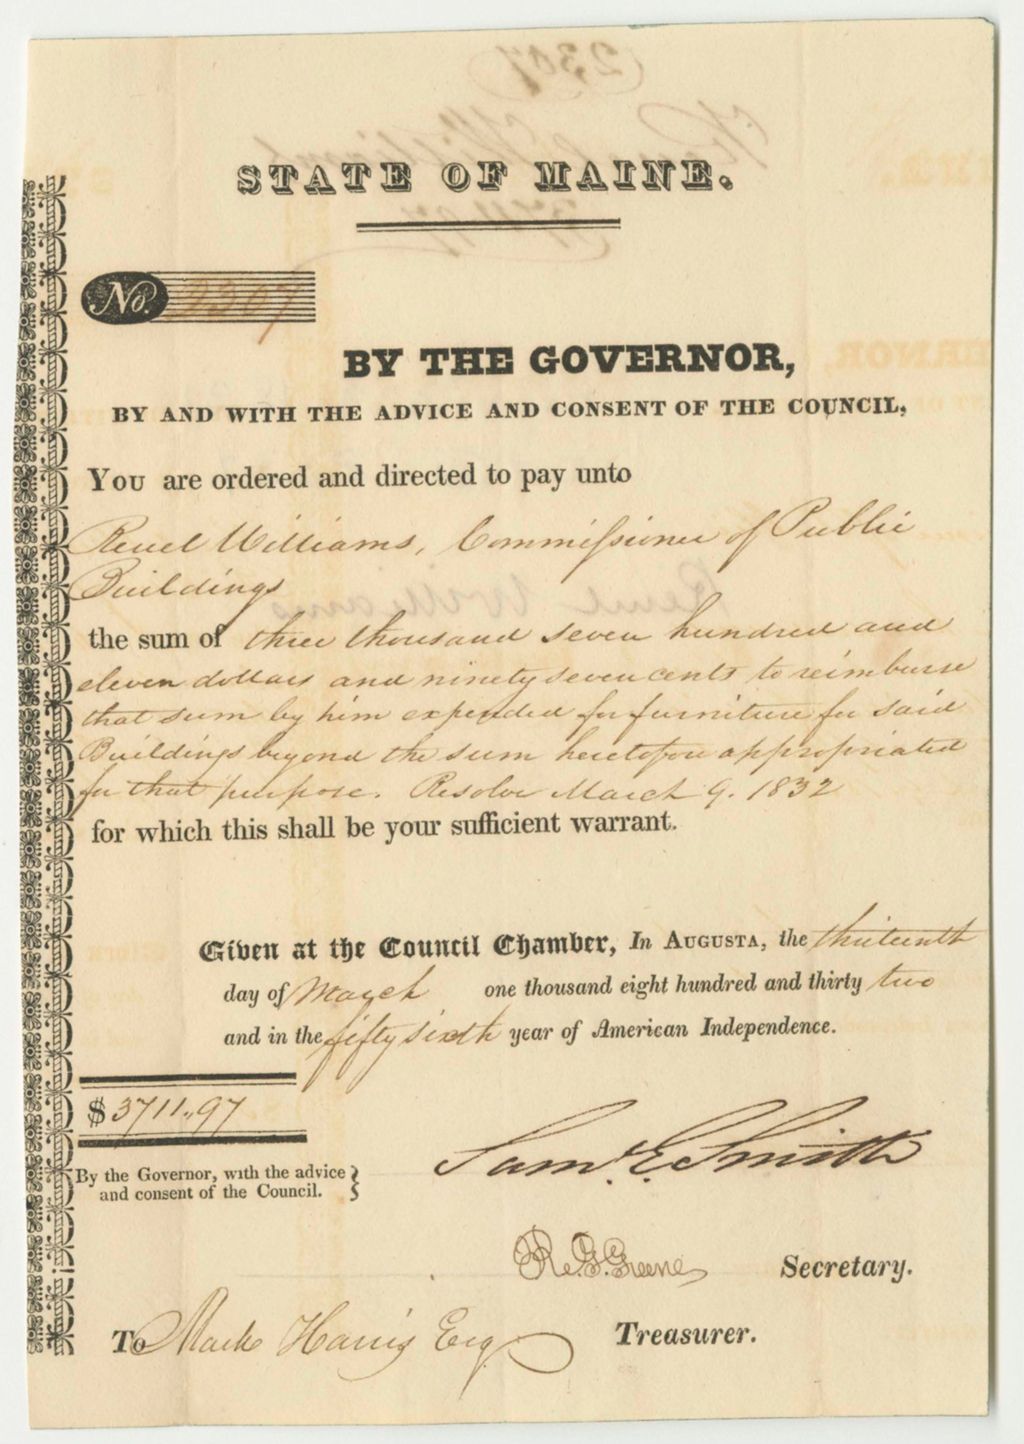 STATE OF MAINE.
No. 2307
BY THE GOVERNOR,
BY AND WITH THE ADVICE AND CONSENT OF THE COUNCIL,
You are ordered and directed to pay unto
Reuel Williams, Commissioner of Public
Buildings
the sum of three thousand seven hundred and
eleven dollars and ninety seven cents to reimburse
that sum by him expended for furniture for said
Buildings beyond the sum heretofore appropriated
for that purpose. Resolve March 9. 1832
for which this shall be your sufficient warrant.
Given at the Council Chamber, In Augusta, the thirteenth
day of March one thousand eight hundred and thirty two
and in the fifty sixth year of American Independence.
$3711.,97
Sam. E. Smith
By the Governor, with the advice
and consent of the Council.
R. G. Greene Secretary.
To Mark Harris Esq Treasurer.